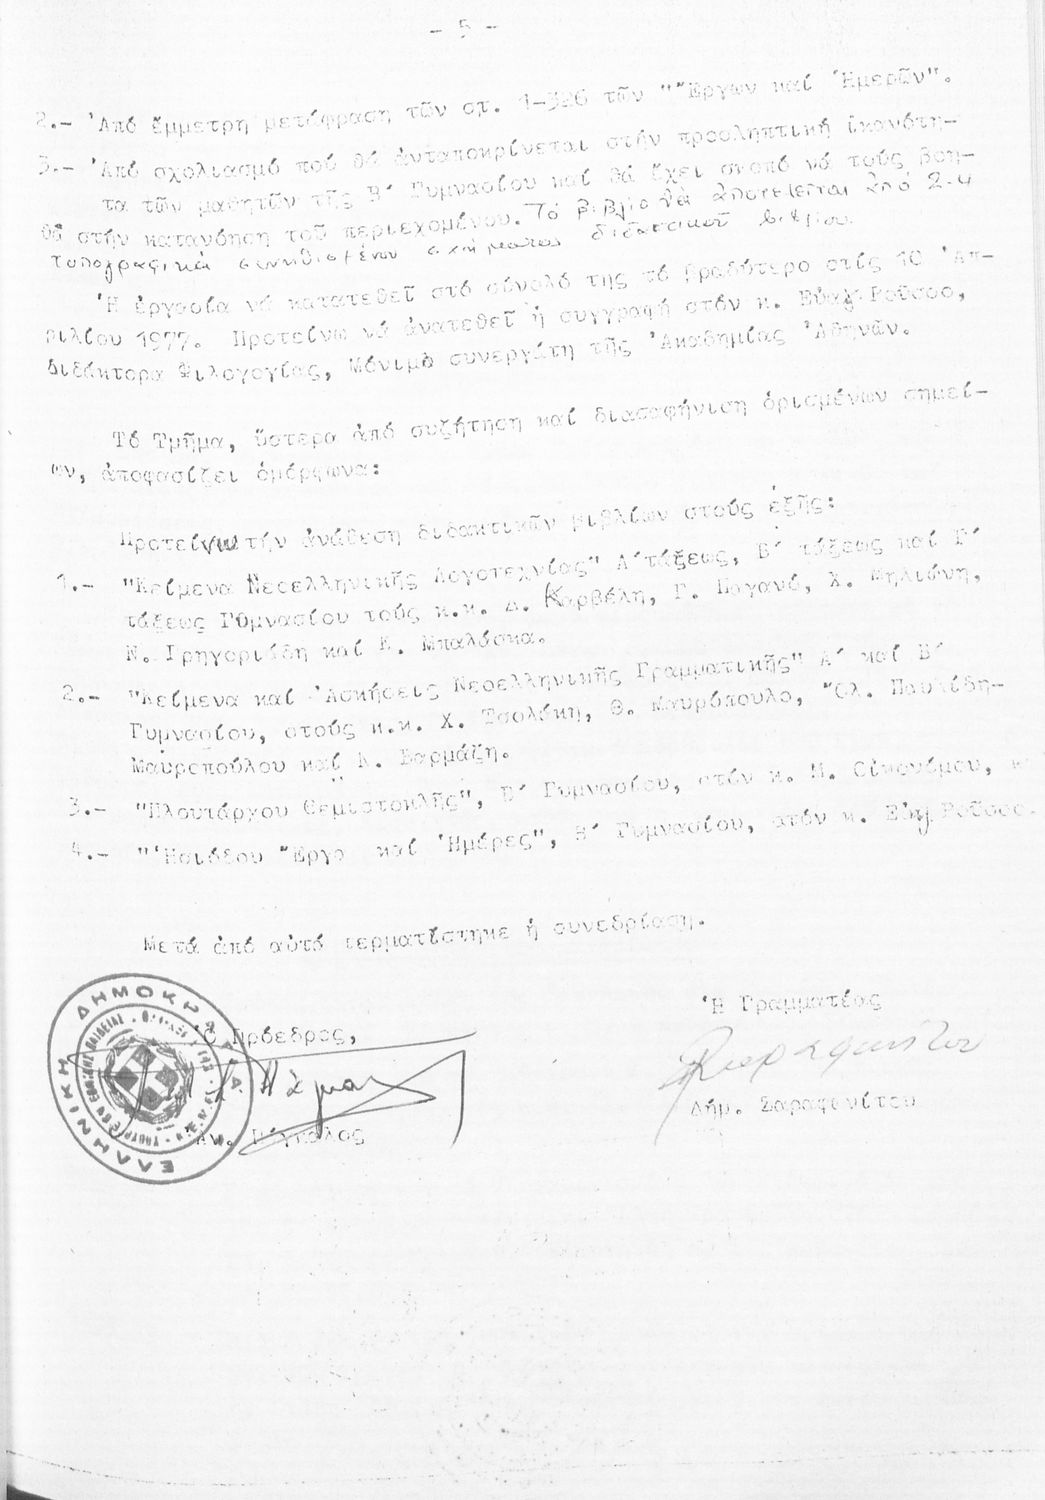 - 5 -
2.- Ἀπό ἔμμετρη μετάφραση τῶν στ. 1-326 τῶν "Ἔργων καί Ἡμερῶν".
3.- Ἀπό σχολιασμό πού θά ἀνταποκρίνεται στήν προσληπτική ἱκανότη-
τα τῶν μαθητῶν τῆς Β΄ Γυμνασίου καί θά ἔχει σκοπό νά τούς βοη-
θᾶ στήν κατανόηση τοῦ περιεχομένου. Τό βιβλίο νά ἀποτελεῖται ἀπό 2-4
τυπογραφικά συνηθισμένου σχήματος διδακτικοῦ βιβλίου.
Ἡ ἐργασία νά κατατεθεῖ στό σύνολό της τό βραδύτερο στίς 10 Ἀπ-
ριλίου 1977. Προτείνω νά ἀνατεθεῖ ἡ συγγραφή στόν κ. Εὐαγ. Ροῦσσο,
διδάκτορα Φιλολογίας, Μόνιμο συνεργάτη τῆς Ἀκαδημίας Ἀθηνῶν.
Τό Τμῆμα, ὕστερα ἀπό συζήτηση καί διασαφήνιση ὁρισμένων σημεί-
ων, ἀποφασίζει ὁμόφωνα:
Προτείνω τήν ἀνάθεση διδακτικῶν βιβλίων στούς ἑξῆς:
1.- "Κείμενα Νεοελληνικῆς Λογοτεχνίας" Α΄ τάξεως, Β΄ τάξεως καί Γ΄
τάξεως Γυμνασίου τούς κ.κ. Δ. Καρβέλη, Γ. Παγανό, Χ. Μηλιώνη,
Ν. Γρηγοριάδη καί Ε. Μπαλάσκα.
2.- "Κείμενα καί Ἀσκήσεις Νεοελληνικῆς Γραμματικῆς" Α΄ καί Β΄
Γυμνασίου, στούς κ.κ. Χ. Τσολάκη, Θ. Μαυρόπουλο, Ὀλ. Παυλίδη-
Μαυροπούλου καί Λ. Βαρμάζη.
3.- "Πλουτάρχου Θεμιστοκλῆς", Β΄ Γυμνασίου, στόν κ. Μ. Οἰκονόμου,
4.- "Ἡσιόδου Ἔργα καί Ἡμέρες", Β΄ Γυμνασίου, στόν κ. Εὐαγ Ροῦσσο.
Μετά ἀπό αὐτό τερματίστηκε ἡ συνεδρίαση.
Ὁ Πρόεδρος,
Ἡ Γραμματέας
Δήμ. Σαραφωνίτου
ΕΛΛΗΝΙΚΗ ΔΗΜΟΚΡΑΤΙΑ